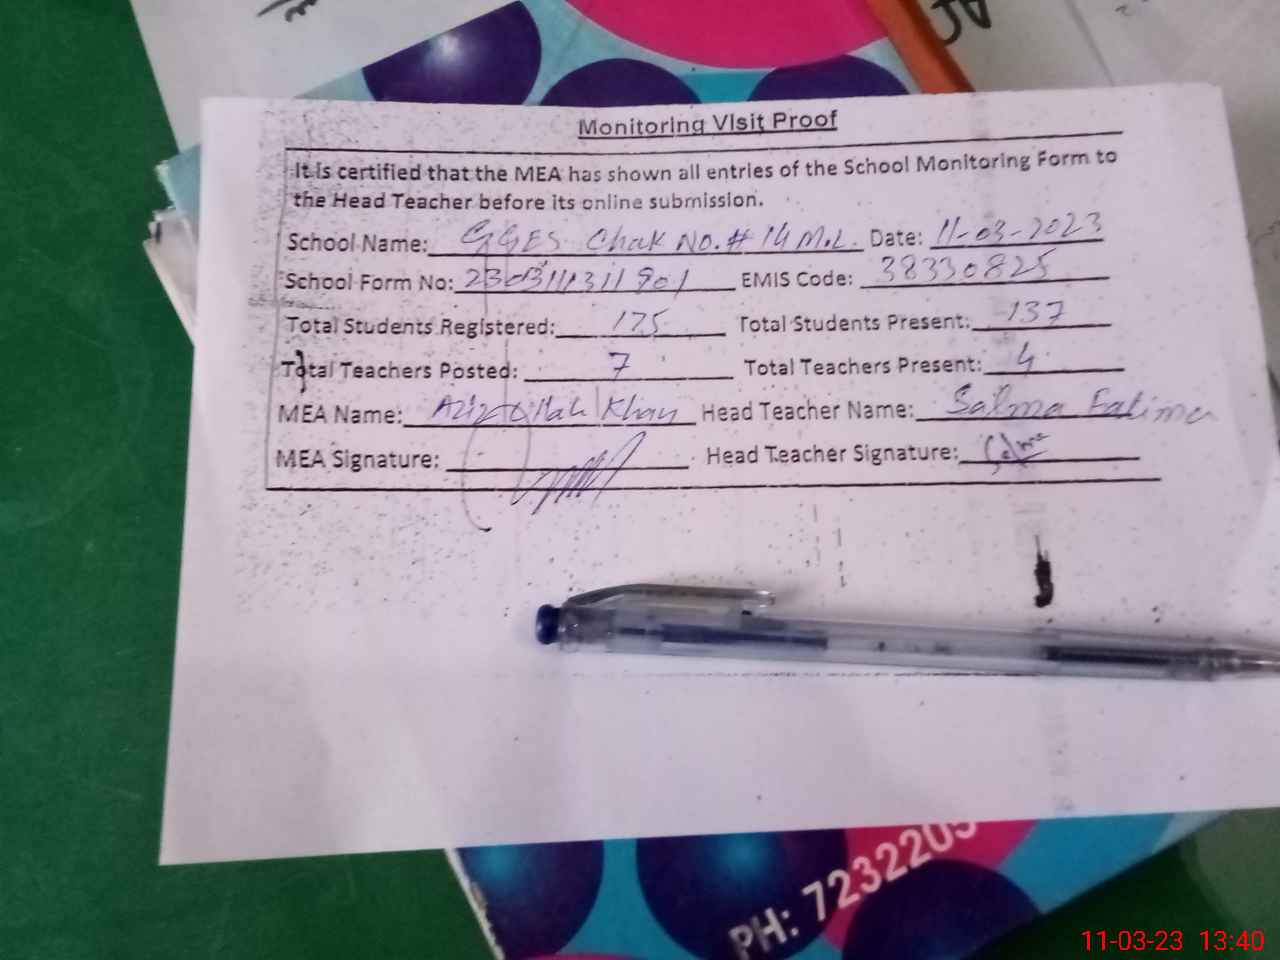 Monitoring Visit Proof
It is certified that the MEA has shown all entries of the School Monitoring Form to
the Head Teacher before its online submission.
School Name: GGES Chak No. # 14 M.L. Date: 11-03-2023
School Form No: EMIS Code: 38330825
Total Students Registered: 175 Total Students Present: 137
Total Teachers Posted: 7 Total Teachers Present: 4
MEA Name: Khan Head Teacher Name: Salma Fatima
MEA Signature: Head Teacher Signature: Salma
PH: 7232205
11-03-23 13:40